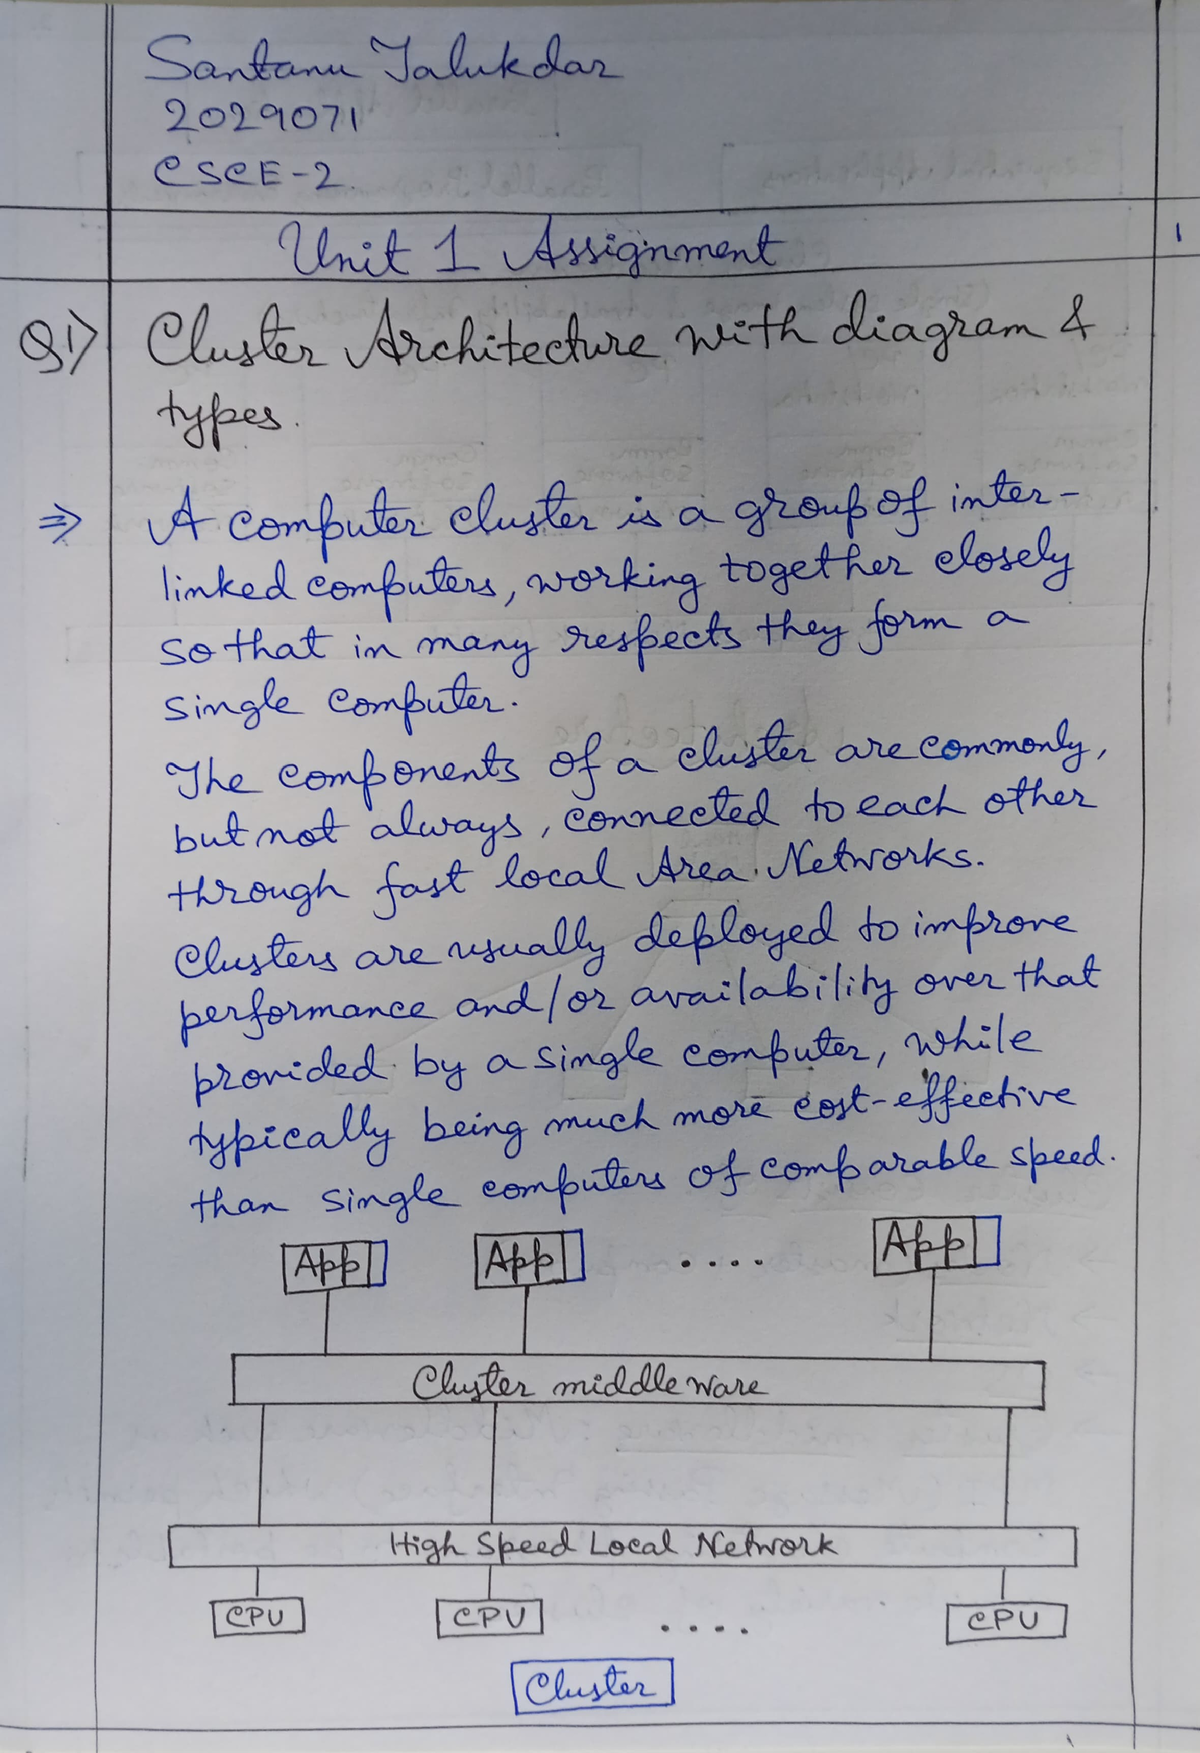 Santanu Talukdar
2029071
CSCE-2
Unit 1 Assignment
1
Q1) Cluster Architecture with diagram &
types.
⇒ A computer cluster is a group of inter-
linked computers, working together closely
so that in many respects they form a
single computer.
The components of a cluster are commonly,
but not always, connected to each other
through fast local Area Networks.
Clusters are usually deployed to improve
performance and/or availability over that
provided by a single computer, while
typically being much more cost-effective
than single computers of comparable speed.
App App .... App
Cluster middleware
High Speed Local Network
CPU CPU .... CPU
Cluster